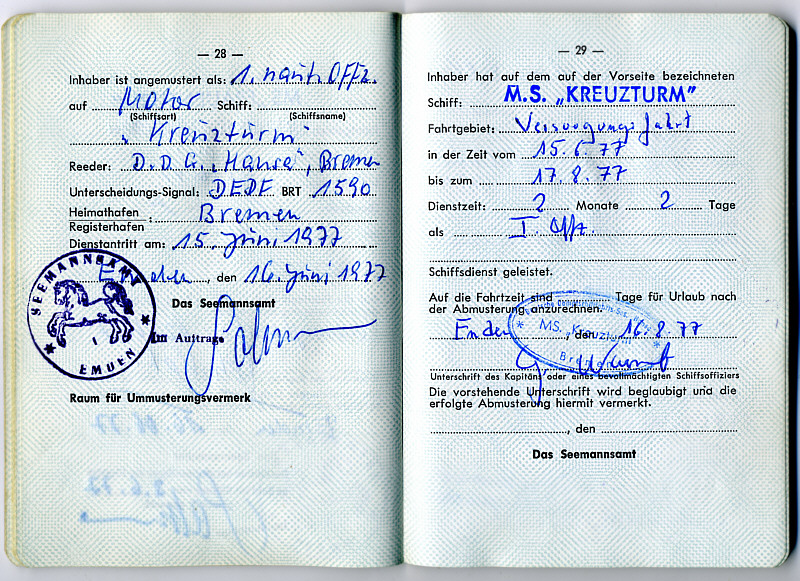 — 28 —
Inhaber ist angemustert als: 1. naut. Offz.
auf Motor Schiff:
(Schiffsart) (Schiffsname)
"Kreuzturm"
Reeder: D.D.G. "Hansa", Bremen
Unterscheidungs-Signal: DEDF BRT 1590
Heimathafen : Bremen
Registerhafen
Dienstantritt am: 15. Juni 1977
Emden, den 16. Juni 1977
Das Seemannsamt
Im Auftrage
SEEMANNSAMT
1
EMDEN
Raum für Ummusterungsvermerk
— 29 —
Inhaber hat auf dem auf der Vorseite bezeichneten
Schiff: M.S. „KREUZTURM"
Fahrtgebiet: Versorgungsfahrt
in der Zeit vom 15.6.77
bis zum 17.8.77
Dienstzeit: 2 Monate 2 Tage
als I. Offz.
Schiffsdienst geleistet.
Auf die Fahrtzeit sind Tage für Urlaub nach
der Abmusterung anzurechnen.
Emden, den 16.8.77
MS. „Kreuzturm"
Unterschrift des Kapitäns oder eines bevollmächtigten Schiffsoffiziers
Die vorstehende Unterschrift wird beglaubigt und die
erfolgte Abmusterung hiermit vermerkt.
, den
Das Seemannsamt